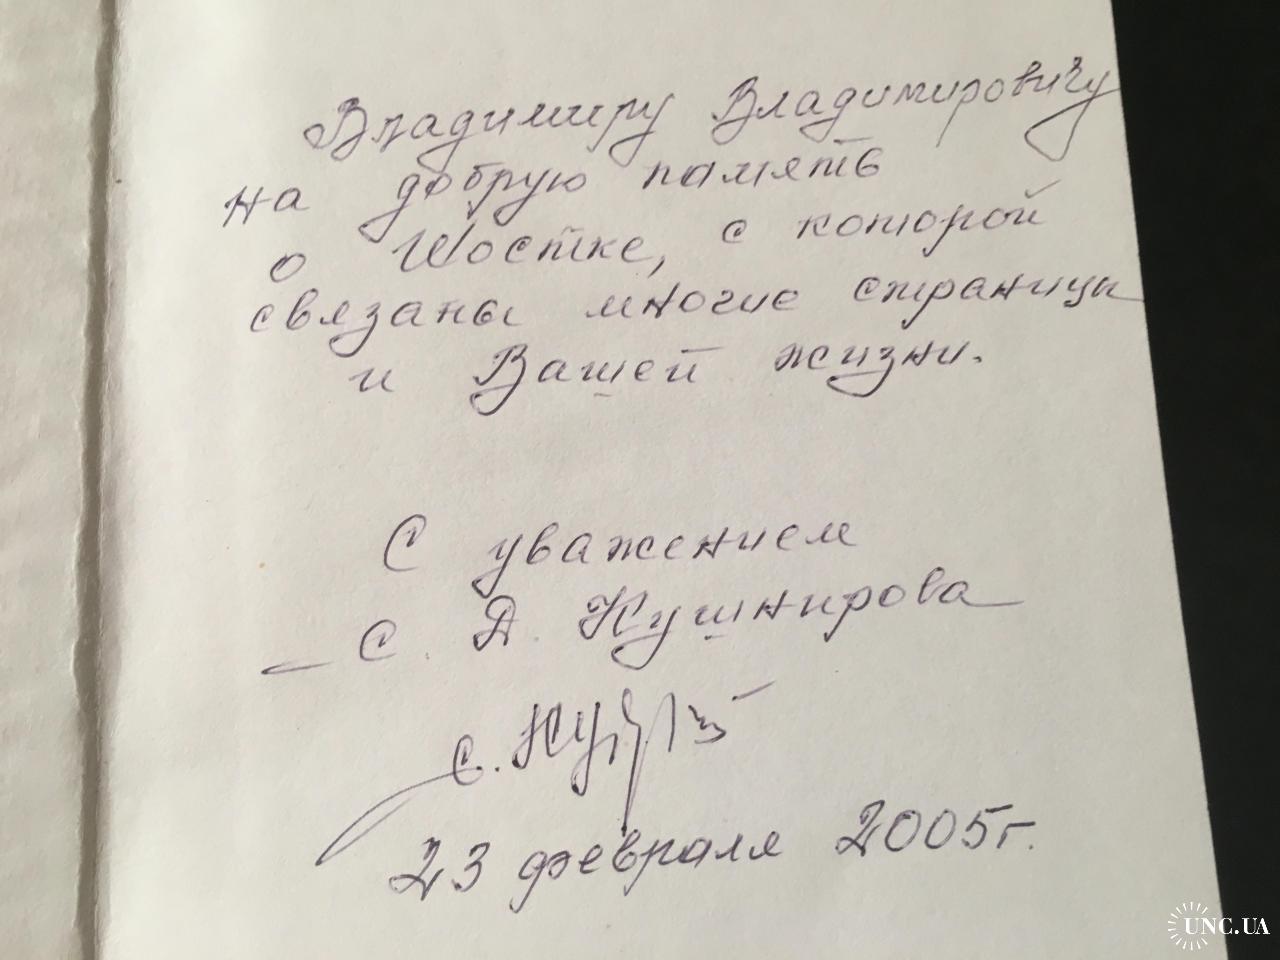 Владимиру Владимировичу
на добрую память
о Шостке, с которой
связаны многие страницы
и Вашей жизни.
С уважением
С. Д. Кушнирова
23 февраля 2005г.
UNC.UA